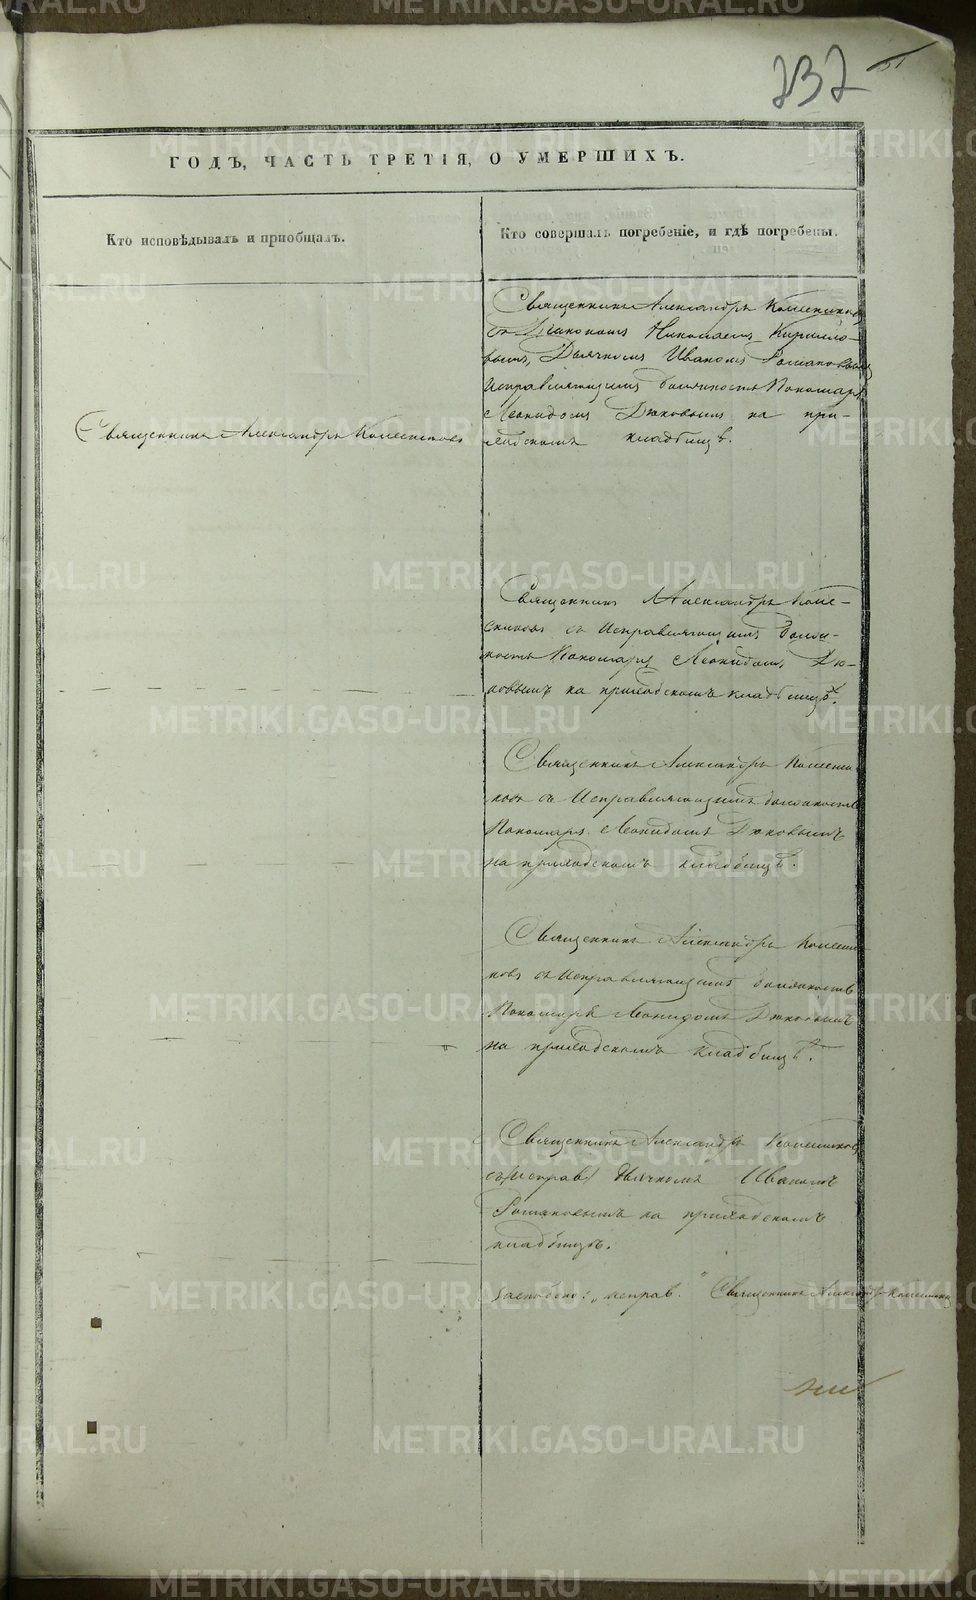 237
ГОДЪ, ЧАСТЬ ТРЕТІЯ, О УМЕРШИХЪ.
Кто исповѣдывалъ и пріобщалъ.
Кто совершалъ погребеніе, и гдѣ погребены.
Священникъ Александръ
Священникъ Александръ
съ Діакономъ Николаемъ Кирилло-
вымъ, Дьячкомъ Иваномъ Романовымъ
Исправляющимъ должность Пономаря
Леонидомъ Дюковымъ на при-
ходскомъ кладбищѣ.
Священникъ Александръ
съ Исправляющимъ долж-
ность Пономаря Леонидомъ Дю-
ковымъ на приходскомъ кладбищѣ.
Священникъ Александръ
съ Исправляющимъ должность
Пономаря Леонидомъ Дюковымъ
на приходскомъ кладбищѣ.
Священникъ Александръ
съ Исправляющимъ должность
Пономаря Леонидомъ Дюковымъ
на приходскомъ кладбищѣ.
Священникъ Александръ
Дьячкомъ Иваномъ
Романовымъ на приходскомъ
кладбищѣ.
"исправ." Священникъ Александръ
METRIKI.GASO-URAL.RU